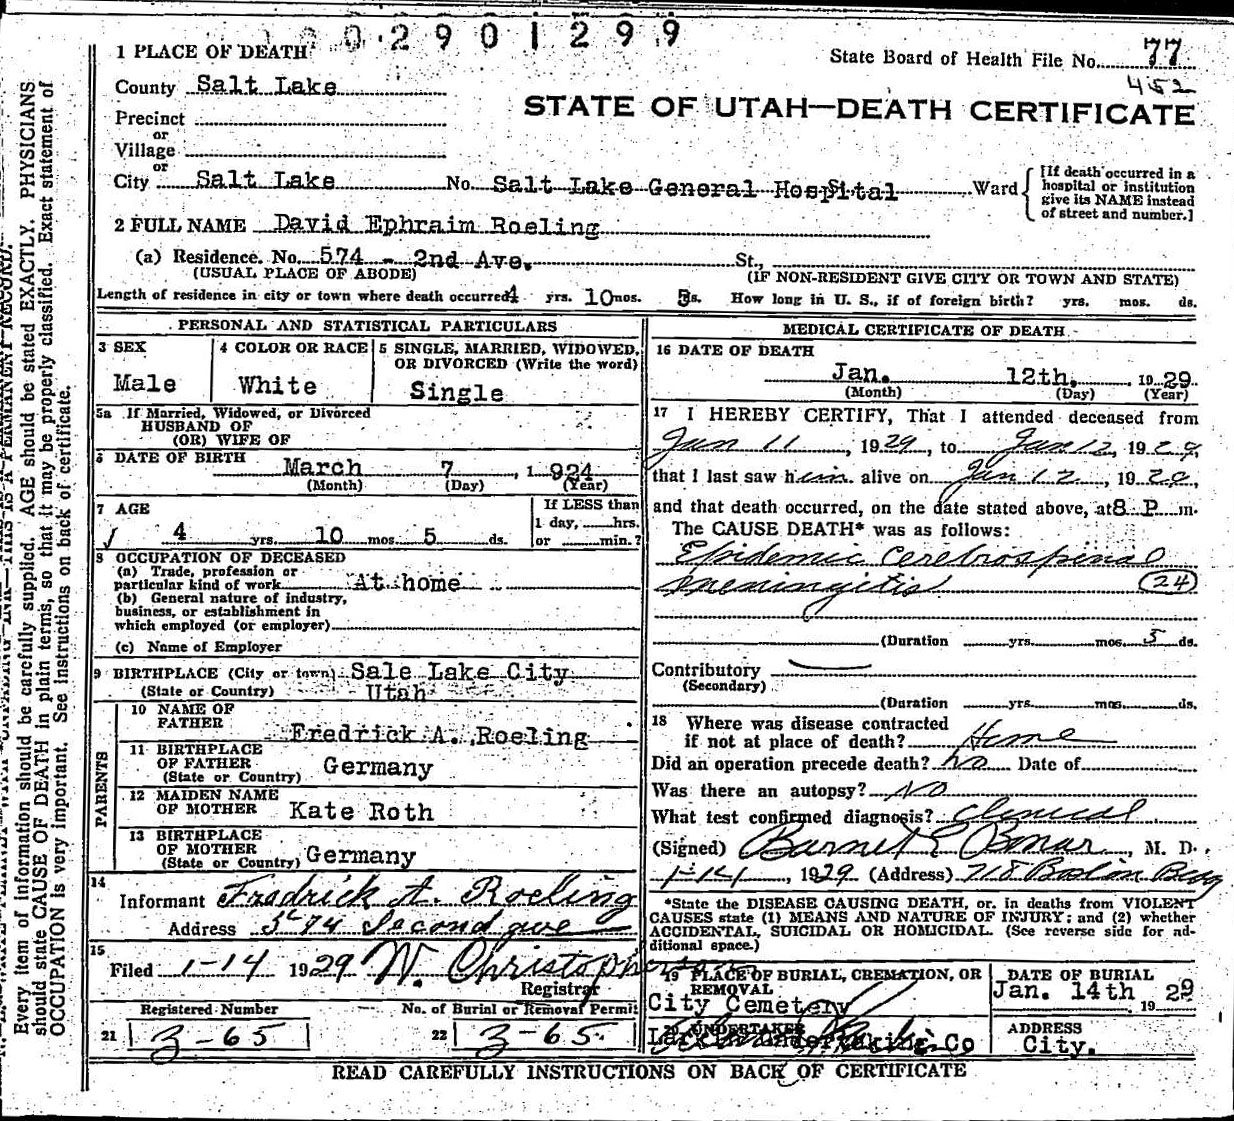 0 2 9 0 1 2 9 9
1 PLACE OF DEATH
State Board of Health File No. 77
452
County Salt Lake
STATE OF UTAH—DEATH CERTIFICATE
Precinct
or
Village
or
City Salt Lake No. Salt Lake General Hospital Ward
[If death occurred in a
hospital or institution
give its NAME instead
of street and number.]
2 FULL NAME David Ephraim Roeling
(a) Residence. No. 574 - 2nd Ave. St.,
(USUAL PLACE OF ABODE) (IF NON-RESIDENT GIVE CITY OR TOWN AND STATE)
Length of residence in city or town where death occurred 4 yrs. 10 mos. 5 ds. How long in U. S., if of foreign birth? yrs. mos. ds.
PERSONAL AND STATISTICAL PARTICULARS
3 SEX
Male
4 COLOR OR RACE
White
5 SINGLE, MARRIED, WIDOWED,
OR DIVORCED (Write the word)
Single
5a If Married, Widowed, or Divorced
HUSBAND OF
(OR) WIFE OF
6 DATE OF BIRTH
March 7 , 1 924
(Month) (Day) (Year)
7 AGE
4 yrs. 10 mos. 5 ds.
If LESS than
1 day, hrs.
or min.?
8 OCCUPATION OF DECEASED
(a) Trade, profession or
particular kind of work At home
(b) General nature of industry,
business, or establishment in
which employed (or employer)
(c) Name of Employer
9 BIRTHPLACE (City or town) Sale Lake City
(State or Country) Utah
PARENTS
10 NAME OF
FATHER Fredrick A. Roeling
11 BIRTHPLACE
OF FATHER
(State or Country) Germany
12 MAIDEN NAME
OF MOTHER Kate Roth
13 BIRTHPLACE
OF MOTHER
(State or Country) Germany
14
Informant Fredrick A. Roeling
Address 574 Second ave
15
Filed 1-14 1929 W. Christopherson
Registrar
Registered Number No. of Burial or Removal Permit
21 3-65 22 3-65
MEDICAL CERTIFICATE OF DEATH
16 DATE OF DEATH
Jan. 12th. 1929
(Month) (Day) (Year)
17 I HEREBY CERTIFY, That I attended deceased from
Jan 11, 1929, to Jan 12, 1929,
that I last saw him alive on Jan 12, 1929,
and that death occurred, on the date stated above, at 8 P m.
The CAUSE DEATH* was as follows:
Epidemic Cerebrospinal
meningitis (24)
(Duration yrs. mos. 5 ds.
Contributory
(Secondary)
(Duration yrs. mos. ds.
18 Where was disease contracted
if not at place of death? Home
Did an operation precede death? No Date of
Was there an autopsy? NO
What test confirmed diagnosis? Clinical
(Signed) Barnet E Bonar, M. D.
1-14, 1929 (Address) 718 Boston Bldg
*State the DISEASE CAUSING DEATH, or, in deaths from VIOLENT
CAUSES state (1) MEANS AND NATURE OF INJURY; and (2) whether
ACCIDENTAL, SUICIDAL OR HOMICIDAL. (See reverse side for ad-
ditional space.)
19 PLACE OF BURIAL, CREMATION, OR
REMOVAL
City Cemetery
DATE OF BURIAL
Jan. 14th 1929
20 UNDERTAKER
Larkin Undertaking Co
ADDRESS
City.
READ CAREFULLY INSTRUCTIONS ON BACK OF CERTIFICATE
Every item of information should be carefully supplied. AGE should be stated EXACTLY. PHYSICIANS
should state CAUSE OF DEATH in plain terms, so that it may be properly classified. Exact statement of
OCCUPATION is very important. See instructions on back of certificate.